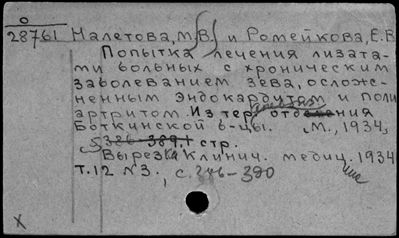 28761 Малетова, М.В. и Ромейкова, Е.В
Попытка лечения лизата-
ми больных с хроническим
заболеванием зева, осложе-
нным эндокардитом и поли
артритом. Из тер. отделения
Боткинской б-цы. М., 1934,
5 стр.
Вырезка Клинич. медиц. 1934
т.12 № 3, с. 386-390
X